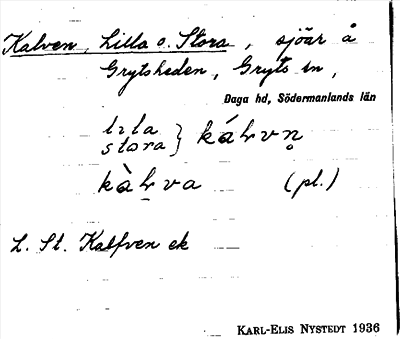 Kalven, Lilla o. Stora, sjöar å
Grytsheden, Gryts sn,
Daga hd, Södermanlands län
lıla
stora } kálvn̥
kàlva (pl.)
L. St. Kalfven ek
KARL-ELIS NYSTEDT 1936